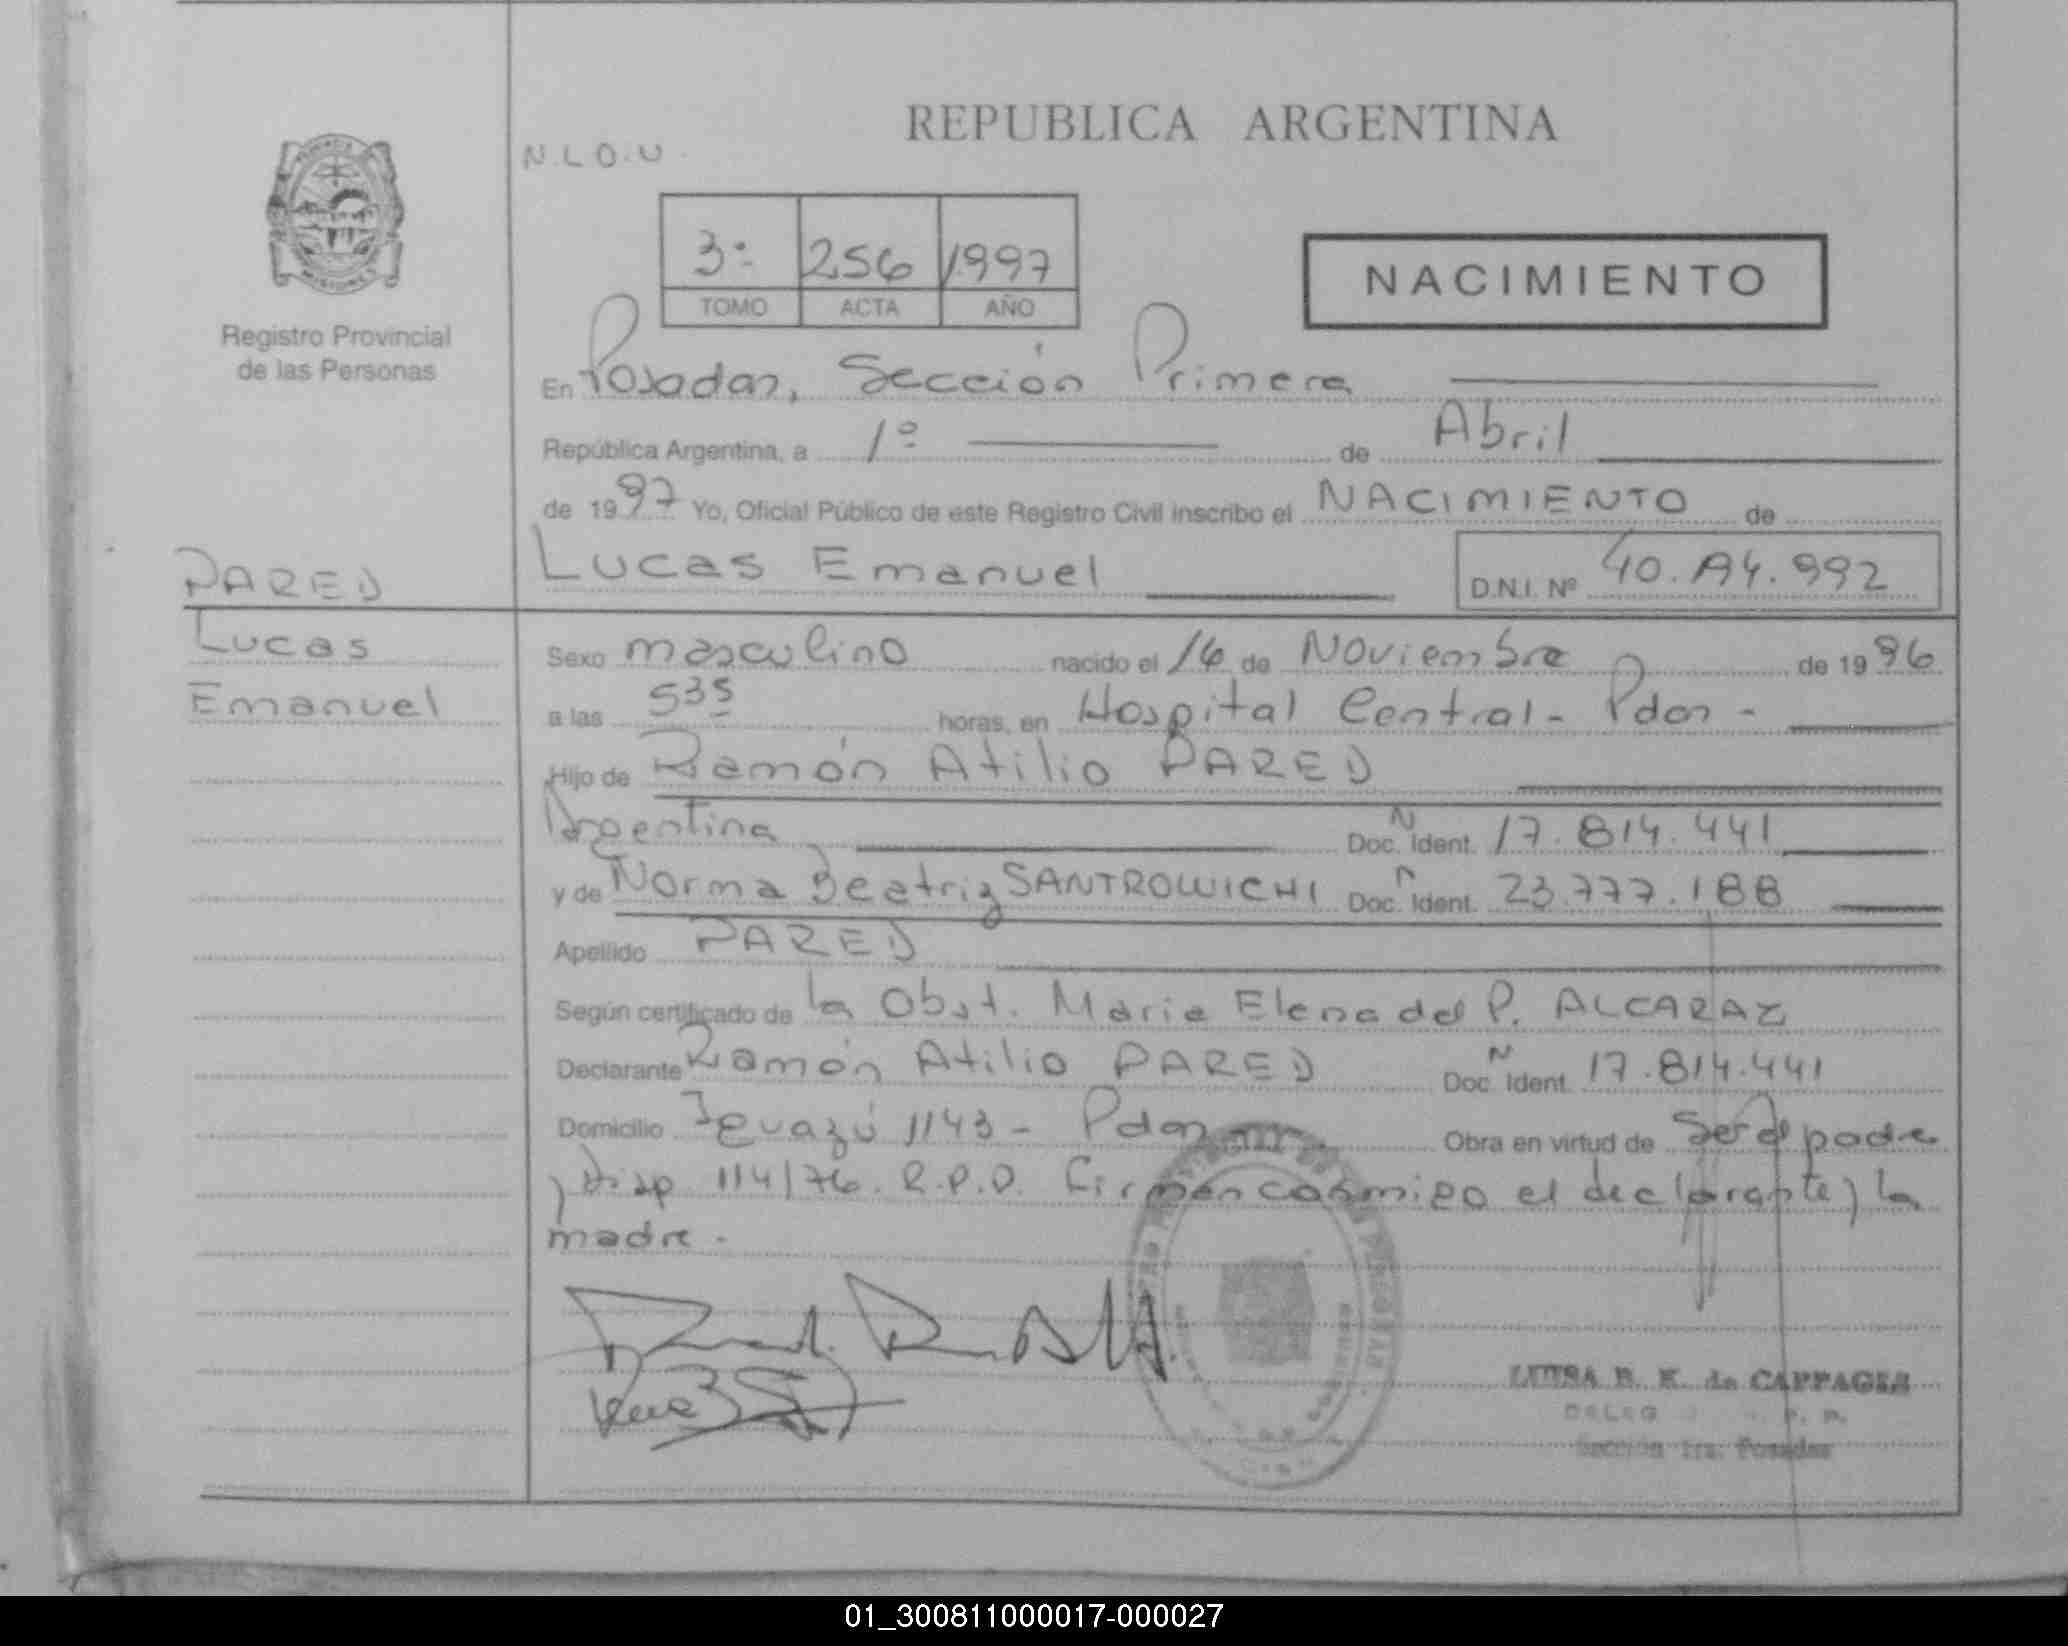 REPUBLICA ARGENTINA
N.L.O.U.
3º 256 1997
TOMO ACTA AÑO
NACIMIENTO
Registro Provincial
de las Personas
En Posadas, Sección Primera
República Argentina, a 1º de Abril
de 1997 Yo, Oficial Público de este Registro Civil inscribo el NACIMIENTO de
PARED
Lucas Emanuel D.N.I. Nº 40.194.992
Lucas
Emanuel
Sexo masculino nacido el 16 de Noviembre de 1996
a las 535 horas, en Hospital Central - Pdas -
Hijo de Ramón Atilio PARED
Argentina Doc. N Ident. 17.814.441
y de Norma Beatriz SANTROWICHI Doc. N Ident. 23.777.188
Apellido PARED
Según certificado de la Obst. Maria Elena del P. ALCARAZ
Declarante Ramón Atilio PARED Doc. N Ident. 17.814.441
Domicilio Iguazú 1143 - Pdas Obra en virtud de Ser el padre
y Disp 114/76. R.P.P. Firman conmigo el declarante y la
madre.
LUISA B. K. de CAPPAGLI
Sección 1ra. Posadas
01_300811000017-000027